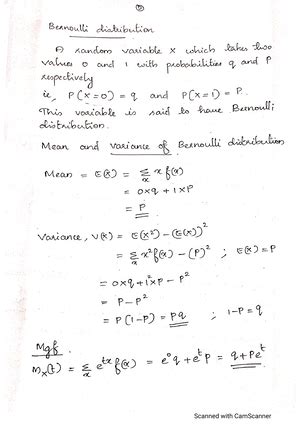 Bernoulli distribution
A random variable X which takes two
values 0 and 1 with probabilities q and P
respectively
ie, P(X=0) = q and P(X=1) = P.
This variable is said to have Bernoulli
distribution.
Mean and variance of Bernoulli distribution
Mean = E(X) = Σx x f(x)
= 0xq + 1xP
= P
Variance, V(X) = E(X²) - (E(X))²
= Σx x² f(x) - (P)² ; E(X) = P
= 0xq + 1²xP - P²
= P - P²
= P(1-P) = Pq ; 1-P = q
Mgf
Mx(t) = Σx e^tx f(x) = e^0 q + e^t P = q + Pe^t
Scanned with CamScanner